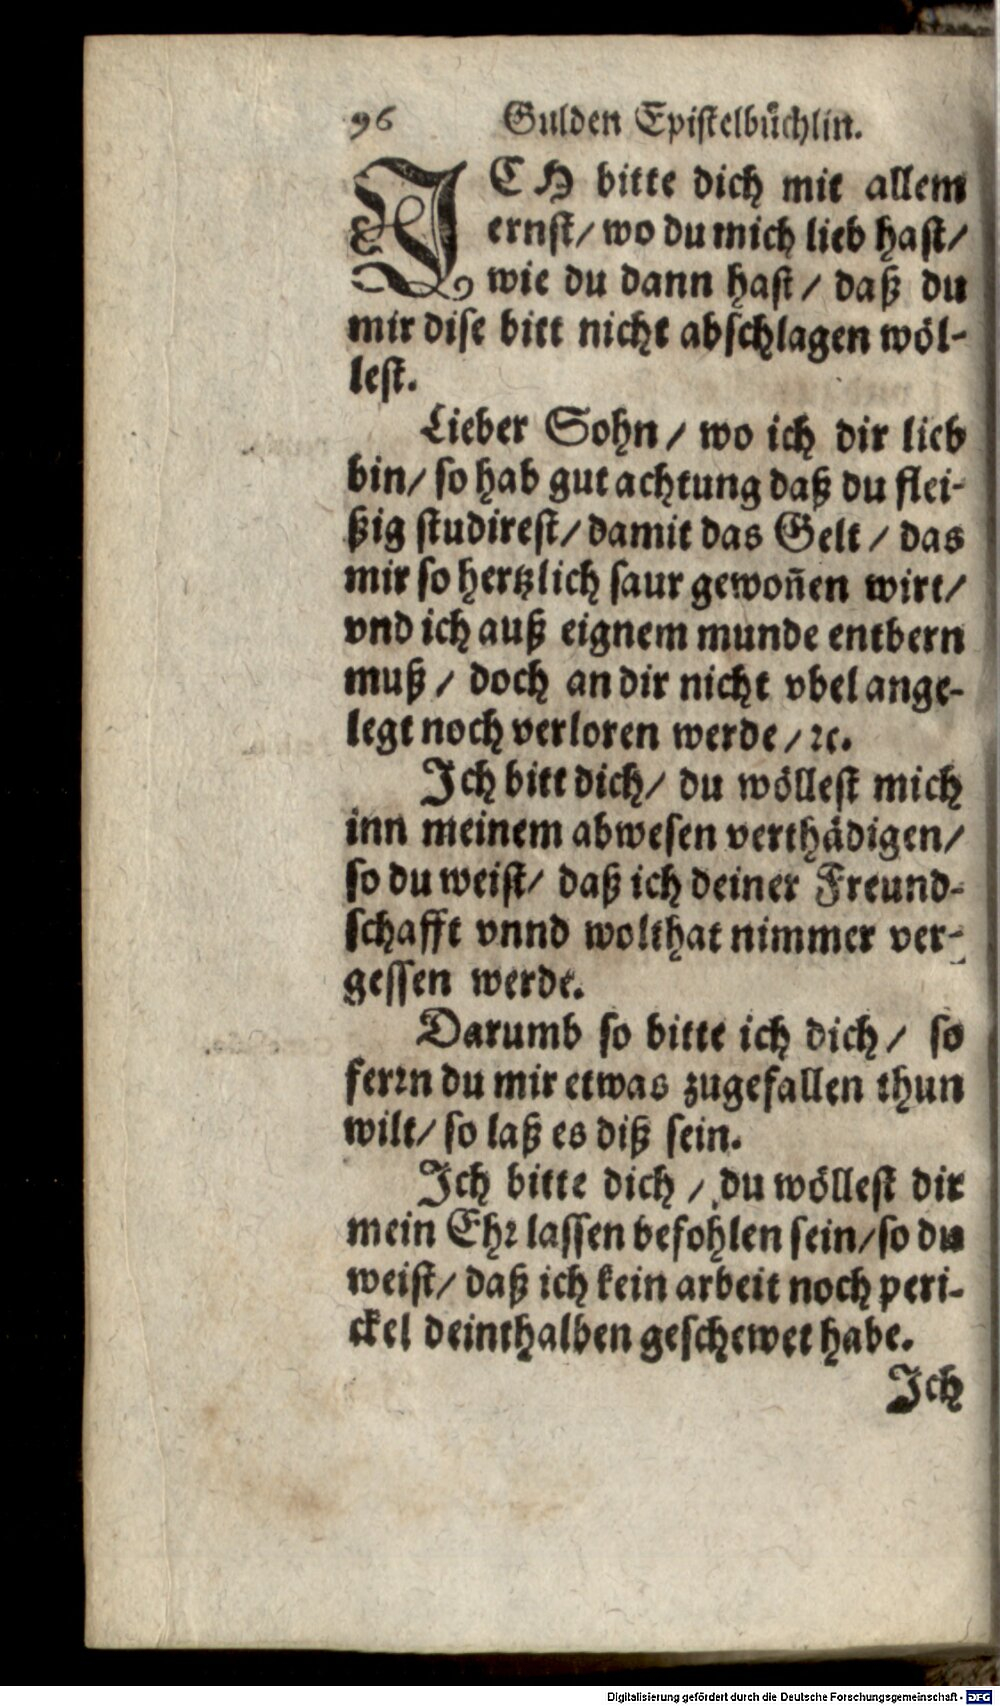 96 Gulden Epistelbuͤchlin.
ICH bitte dich mit allem
ernst/ wo du mich lieb hast/
wie du dann hast/ daß du
mir dise bitt nicht abschlagen wöl-
lest.
Lieber Sohn/ wo ich dir lieb
bin/ so hab gut achtung daß du flei-
ßig studirest/ damit das Gelt/ das
mir so hertzlich saur gewoñen wirt/
vnd ich auß eignem munde entbern
muß/ doch an dir nicht vbel ange-
legt noch verloren werde/ ꝛc.
Ich bitt dich/ du wöllest mich
inn meinem abwesen verthädigen/
so du weist/ daß ich deiner Freund-
schafft vnnd wolthat nimmer ver-
gessen werde.
Darumb so bitte ich dich/ so
ferꝛn du mir etwas zugefallen thun
wilt/ so laß es diß sein.
Ich bitte dich/ du wöllest dir
mein Ehꝛ lassen befohlen sein/ so du
weist/ daß ich kein arbeit noch peri-
ckel deinthalben geschewet habe.
Ich
Digitalisierung gefördert durch die Deutsche Forschungsgemeinschaft - DFG